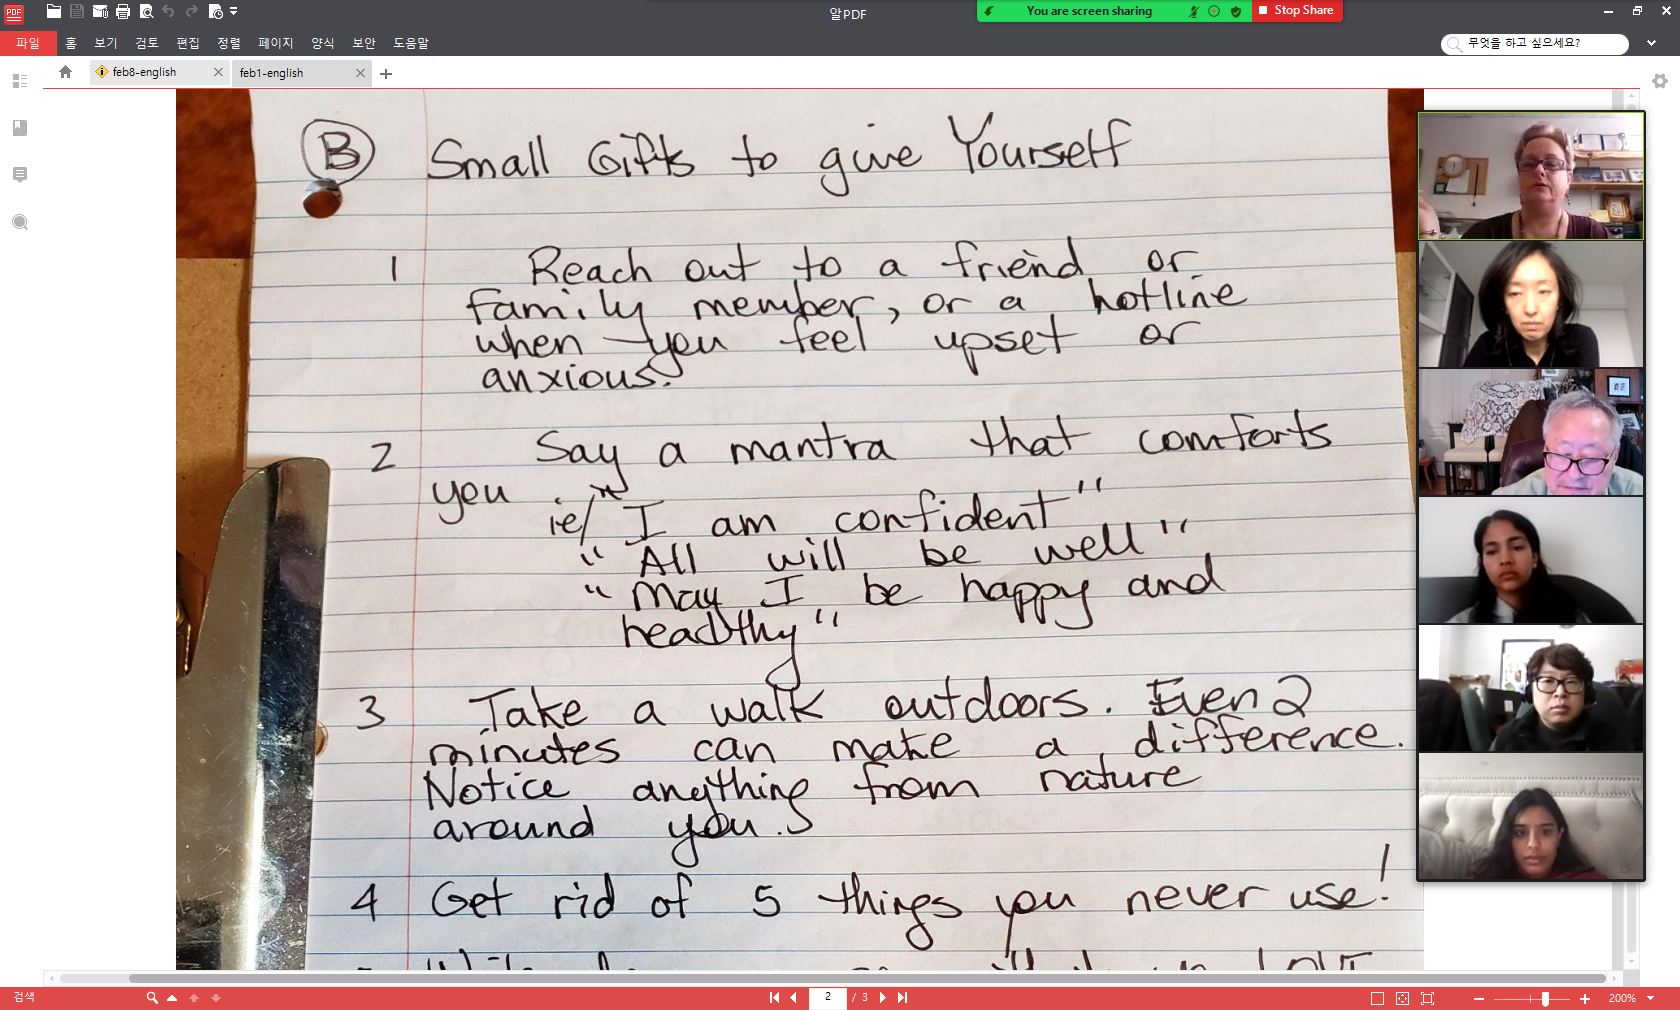 알PDF
You are screen sharing
Stop Share
파일 홈 보기 검토 편집 정렬 페이지 양식 보안 도움말
무엇을 하고 싶으세요?
feb8-english
feb1-english
B Small Gifts to give Yourself
1 Reach out to a friend or
family member, or a hotline
when you feel upset or
anxious.
2 Say a mantra that comforts
you
ie/ "I am confident"
"All will be well"
"May I be happy and
healthy"
3 Take a walk outdoors. Even 2
minutes can make a difference.
Notice anything from nature
around you.
4 Get rid of 5 things you never use!
검색
2 / 3
200%